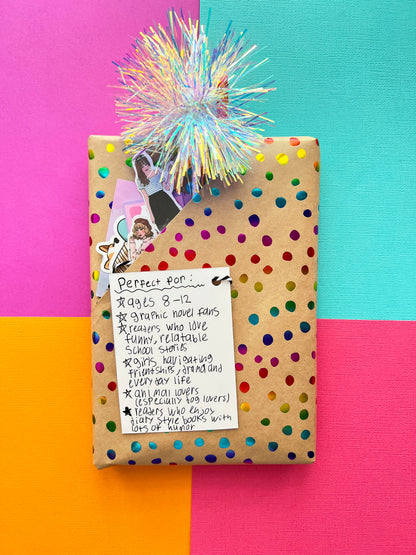 perfect for:
☆ ages 8-12
☆ graphic novel fans
☆ readers who love
funny, relatable
school stories
☆ girls navigating
friendships, drama and
everyday life
☆ animal lovers
(especially dog lovers)
★ readers who enjoy
diary style books with
lots of humor